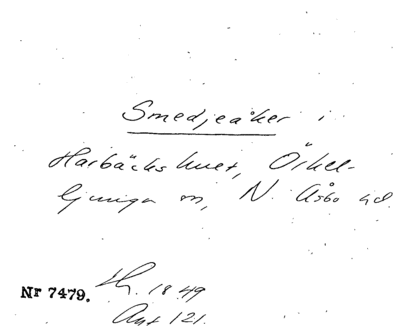 Smedjeåker i
Harbäckshult, Örkel-
ljunga sn, N. Åsbo hd.
Nr 7479.
1849
Ant 121.